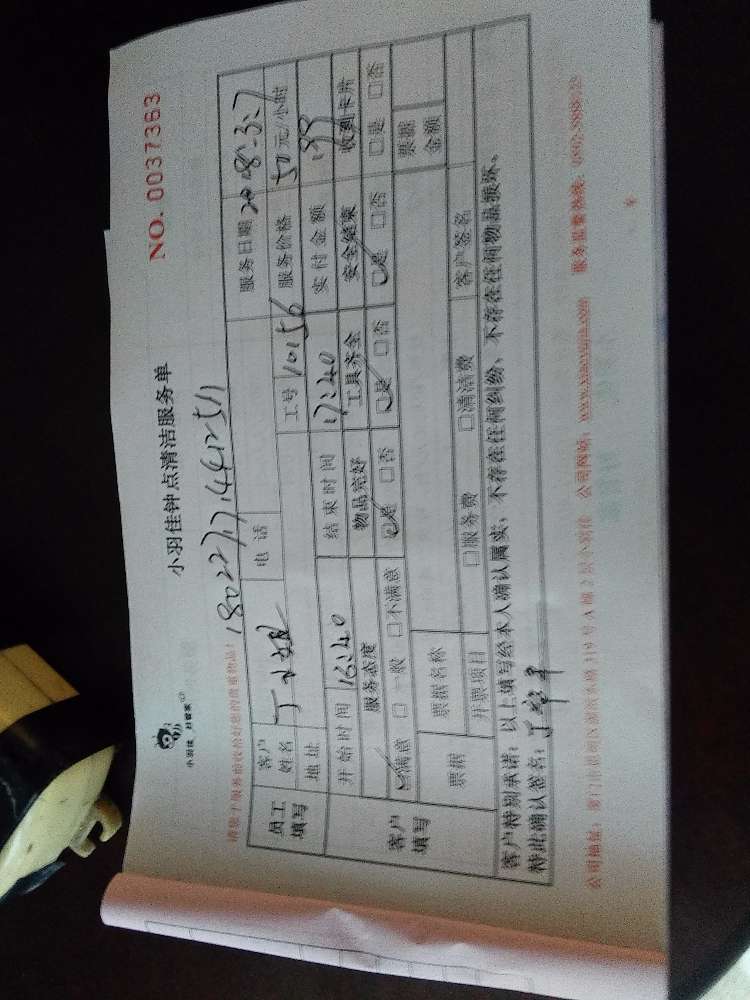 小羽佳 好管家
小羽佳钟点清洁服务单
NO. 0037363
请您于服务前收拾好您的贵重物品!
员工填写
客户姓名
丁小姐
电话
服务日期 2018.3.7
地址
工号 10156
服务价格 50元/小时
开始时间 16:40
结束时间 17:40
实付金额
客户填写
服务态度 物品完好 工具齐全 安全结束 收到卡片
☑满意 □一般 □不满意 ☑是 □否 ☑是 □否 ☑是 □否 □是 □否
票据
票据名称
票据金额
开票项目
□服务费 □清洁费
客户签名
客户特别承诺:以上填写经本人确认属实,不存在任何纠纷,不存在任何物品损坏。
特此确认签名:
公司地址:
公司网址:
服务监督热线: